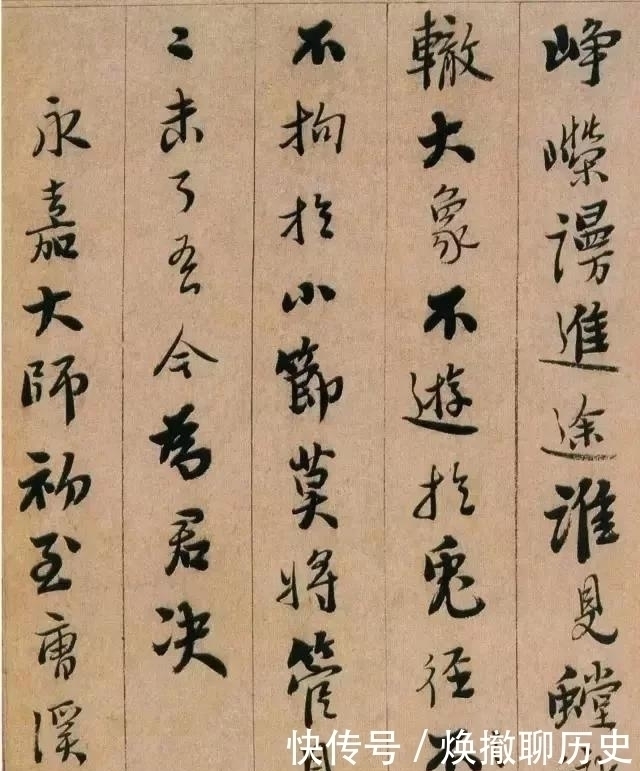 崢嶸謾進途誰見螳
轍大象不遊於兔徑
不拘於小節莫將管
〻未了吾今為君决
永嘉大師初至曹溪
快传号 / 焕撤聊历史